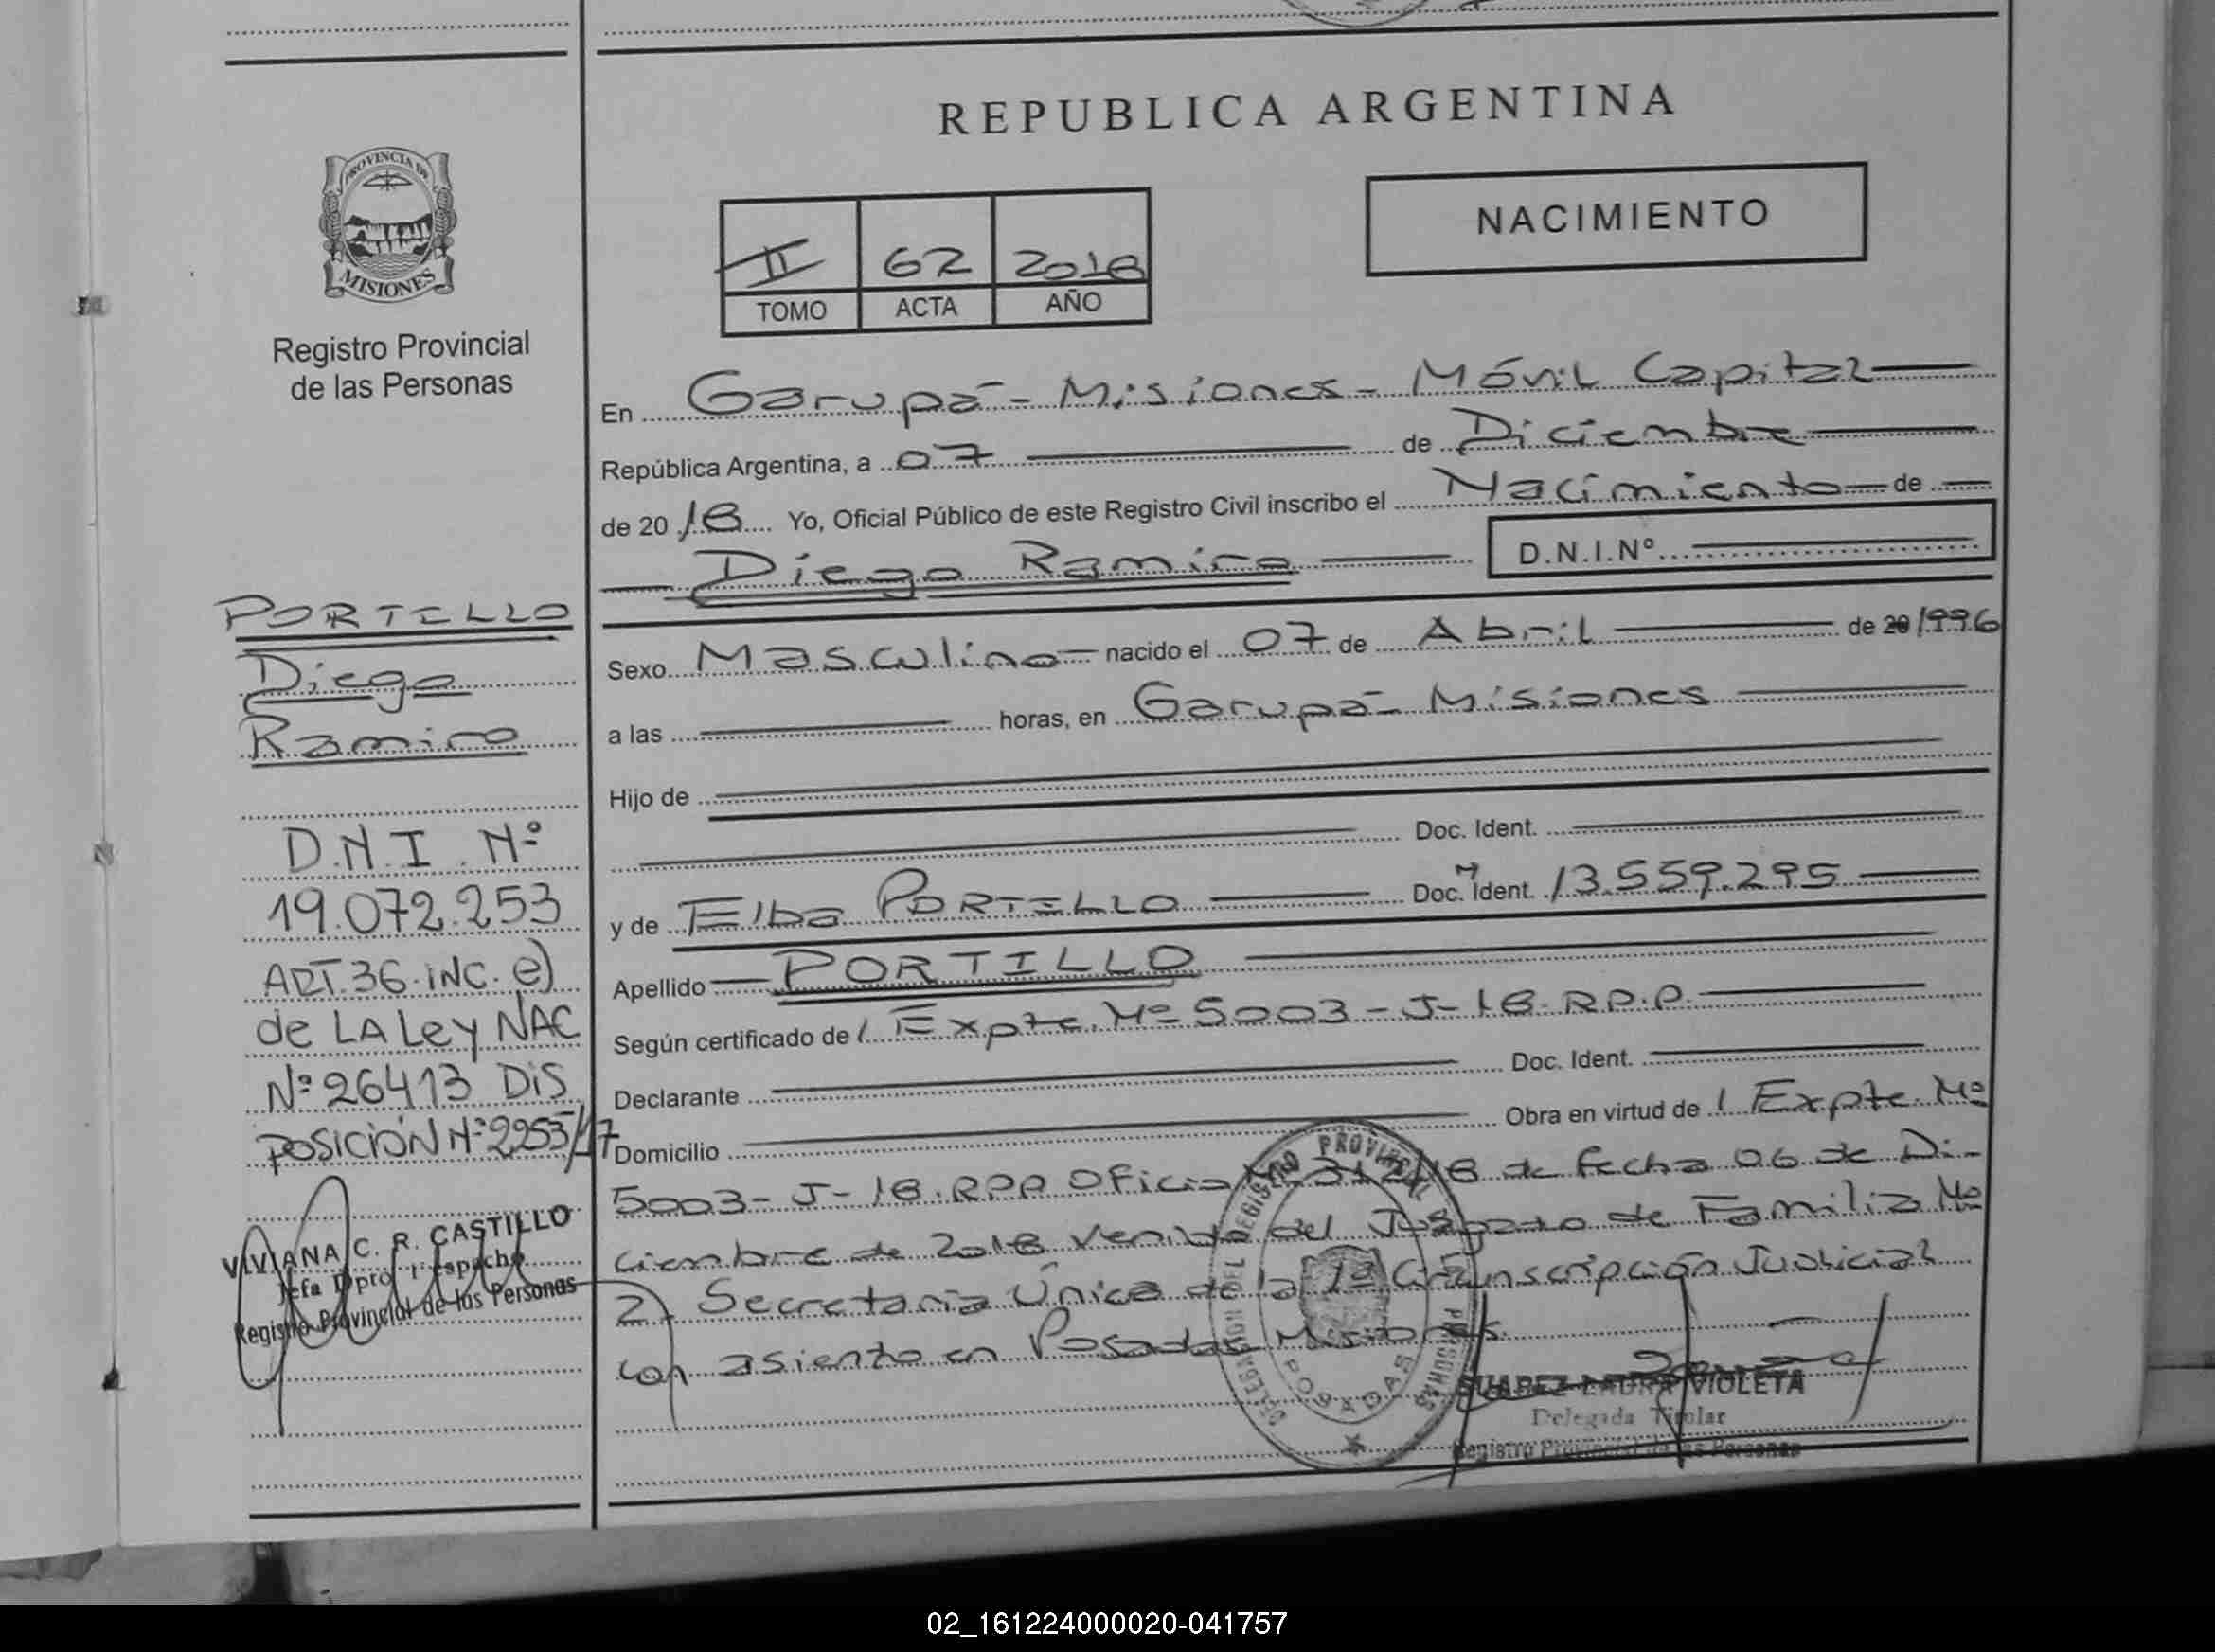 REPUBLICA ARGENTINA
NACIMIENTO
II 62 2018
TOMO ACTA AÑO
PROVINCIA DE
MISIONES
Registro Provincial
de las Personas
En Garupá - Misiones - Móvil Capital
República Argentina, a 07 de Diciembre
de 20 18 Yo, Oficial Público de este Registro Civil inscribo el Nacimiento de
Diego Ramiro D.N.I.Nº
Sexo Masculino nacido el 07 de Abril de 20 1996
a las horas, en Garupá - Misiones
Hijo de
Doc. Ident.
y de Elba PORTILLO Doc. Ident. M 13.559.295
Apellido PORTILLO
Según certificado de / Expte. Nº 5003 - J - 18 - R.P.P.
Declarante Doc. Ident.
Domicilio Obra en virtud de / Expte. Nº
5003 - J - 18. RPP Oficio 18 de fecha 06 de Di-
ciembre de 2018 Venido del Juzgado de Familia Nº
2. Secretaria Única de la 1ª Circunscripción Judicial
con asiento en Posadas Misiones.
PORTILLO
Diego
Ramiro
D.N.I. Nº
19.072.253
ART. 36 INC. e)
de LA Ley NAC
Nº 26413 DIS
POSICIÓN Nº 2253/17
VIVIANA C. R. CASTILLO
Jefa Dpto. Despacho
Registro Provincial de las Personas
DELEGACION DEL REGISTRO PROVINCIAL PERSONAS
POSADAS
SUAREZ LAURA VIOLETA
Delegada Titular
Registro Provincial de las Personas
02_161224000020-041757